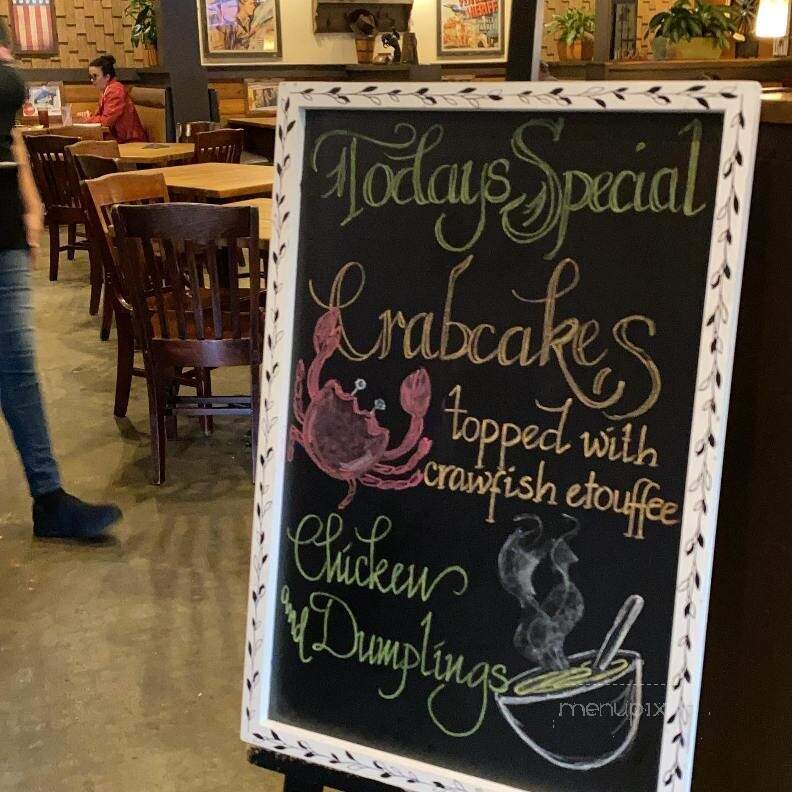 Todays Special
Crabcakes
topped with
crawfish etouffee
Chicken
and Dumplings
menupix